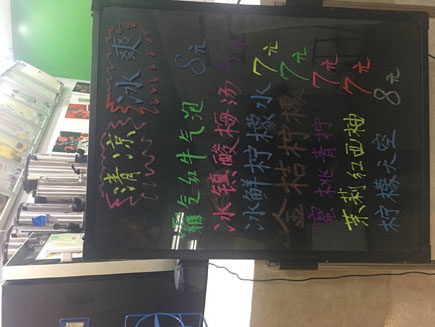 清凉 冰爽
霸气红牛气泡 8元
冰镇酸梅汤
冰鲜柠檬水 7元
金桔柠檬 7元
蜜桃青柠 7元
茉莉红西柚 7元
柠檬天空 8元